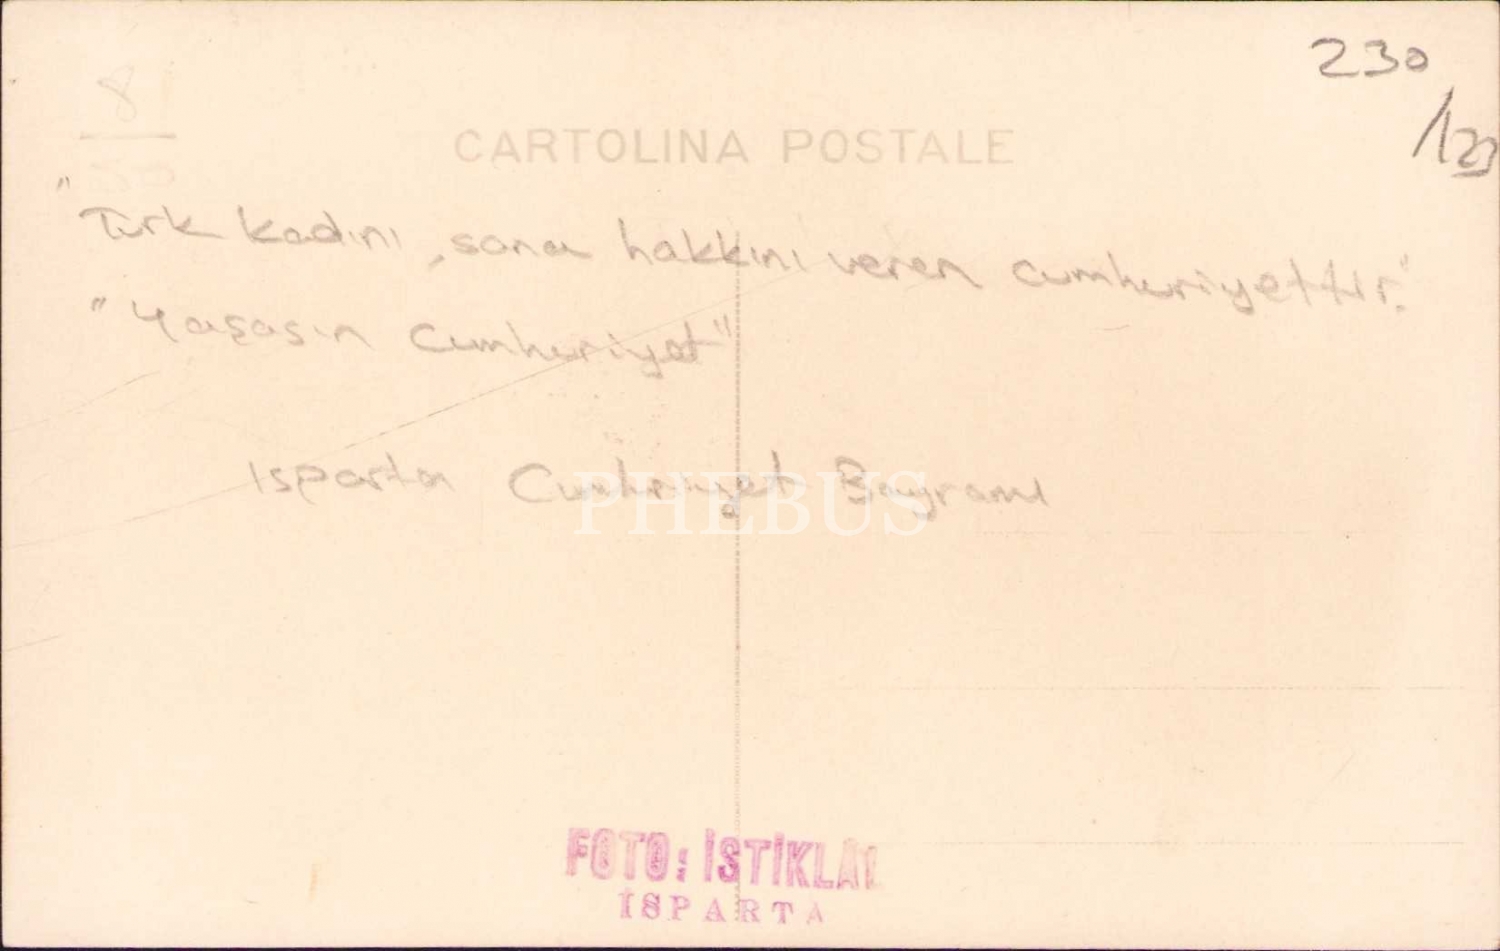 230
8
CARTOLINA POSTALE
"Türk kadını, sana hakkını veren cumhuriyettir."
"Yaşasın Cumhuriyet"
Isparta Cumhuriyet Bayramı
PHEBUS
FOTO: İSTİKLAL
ISPARTA